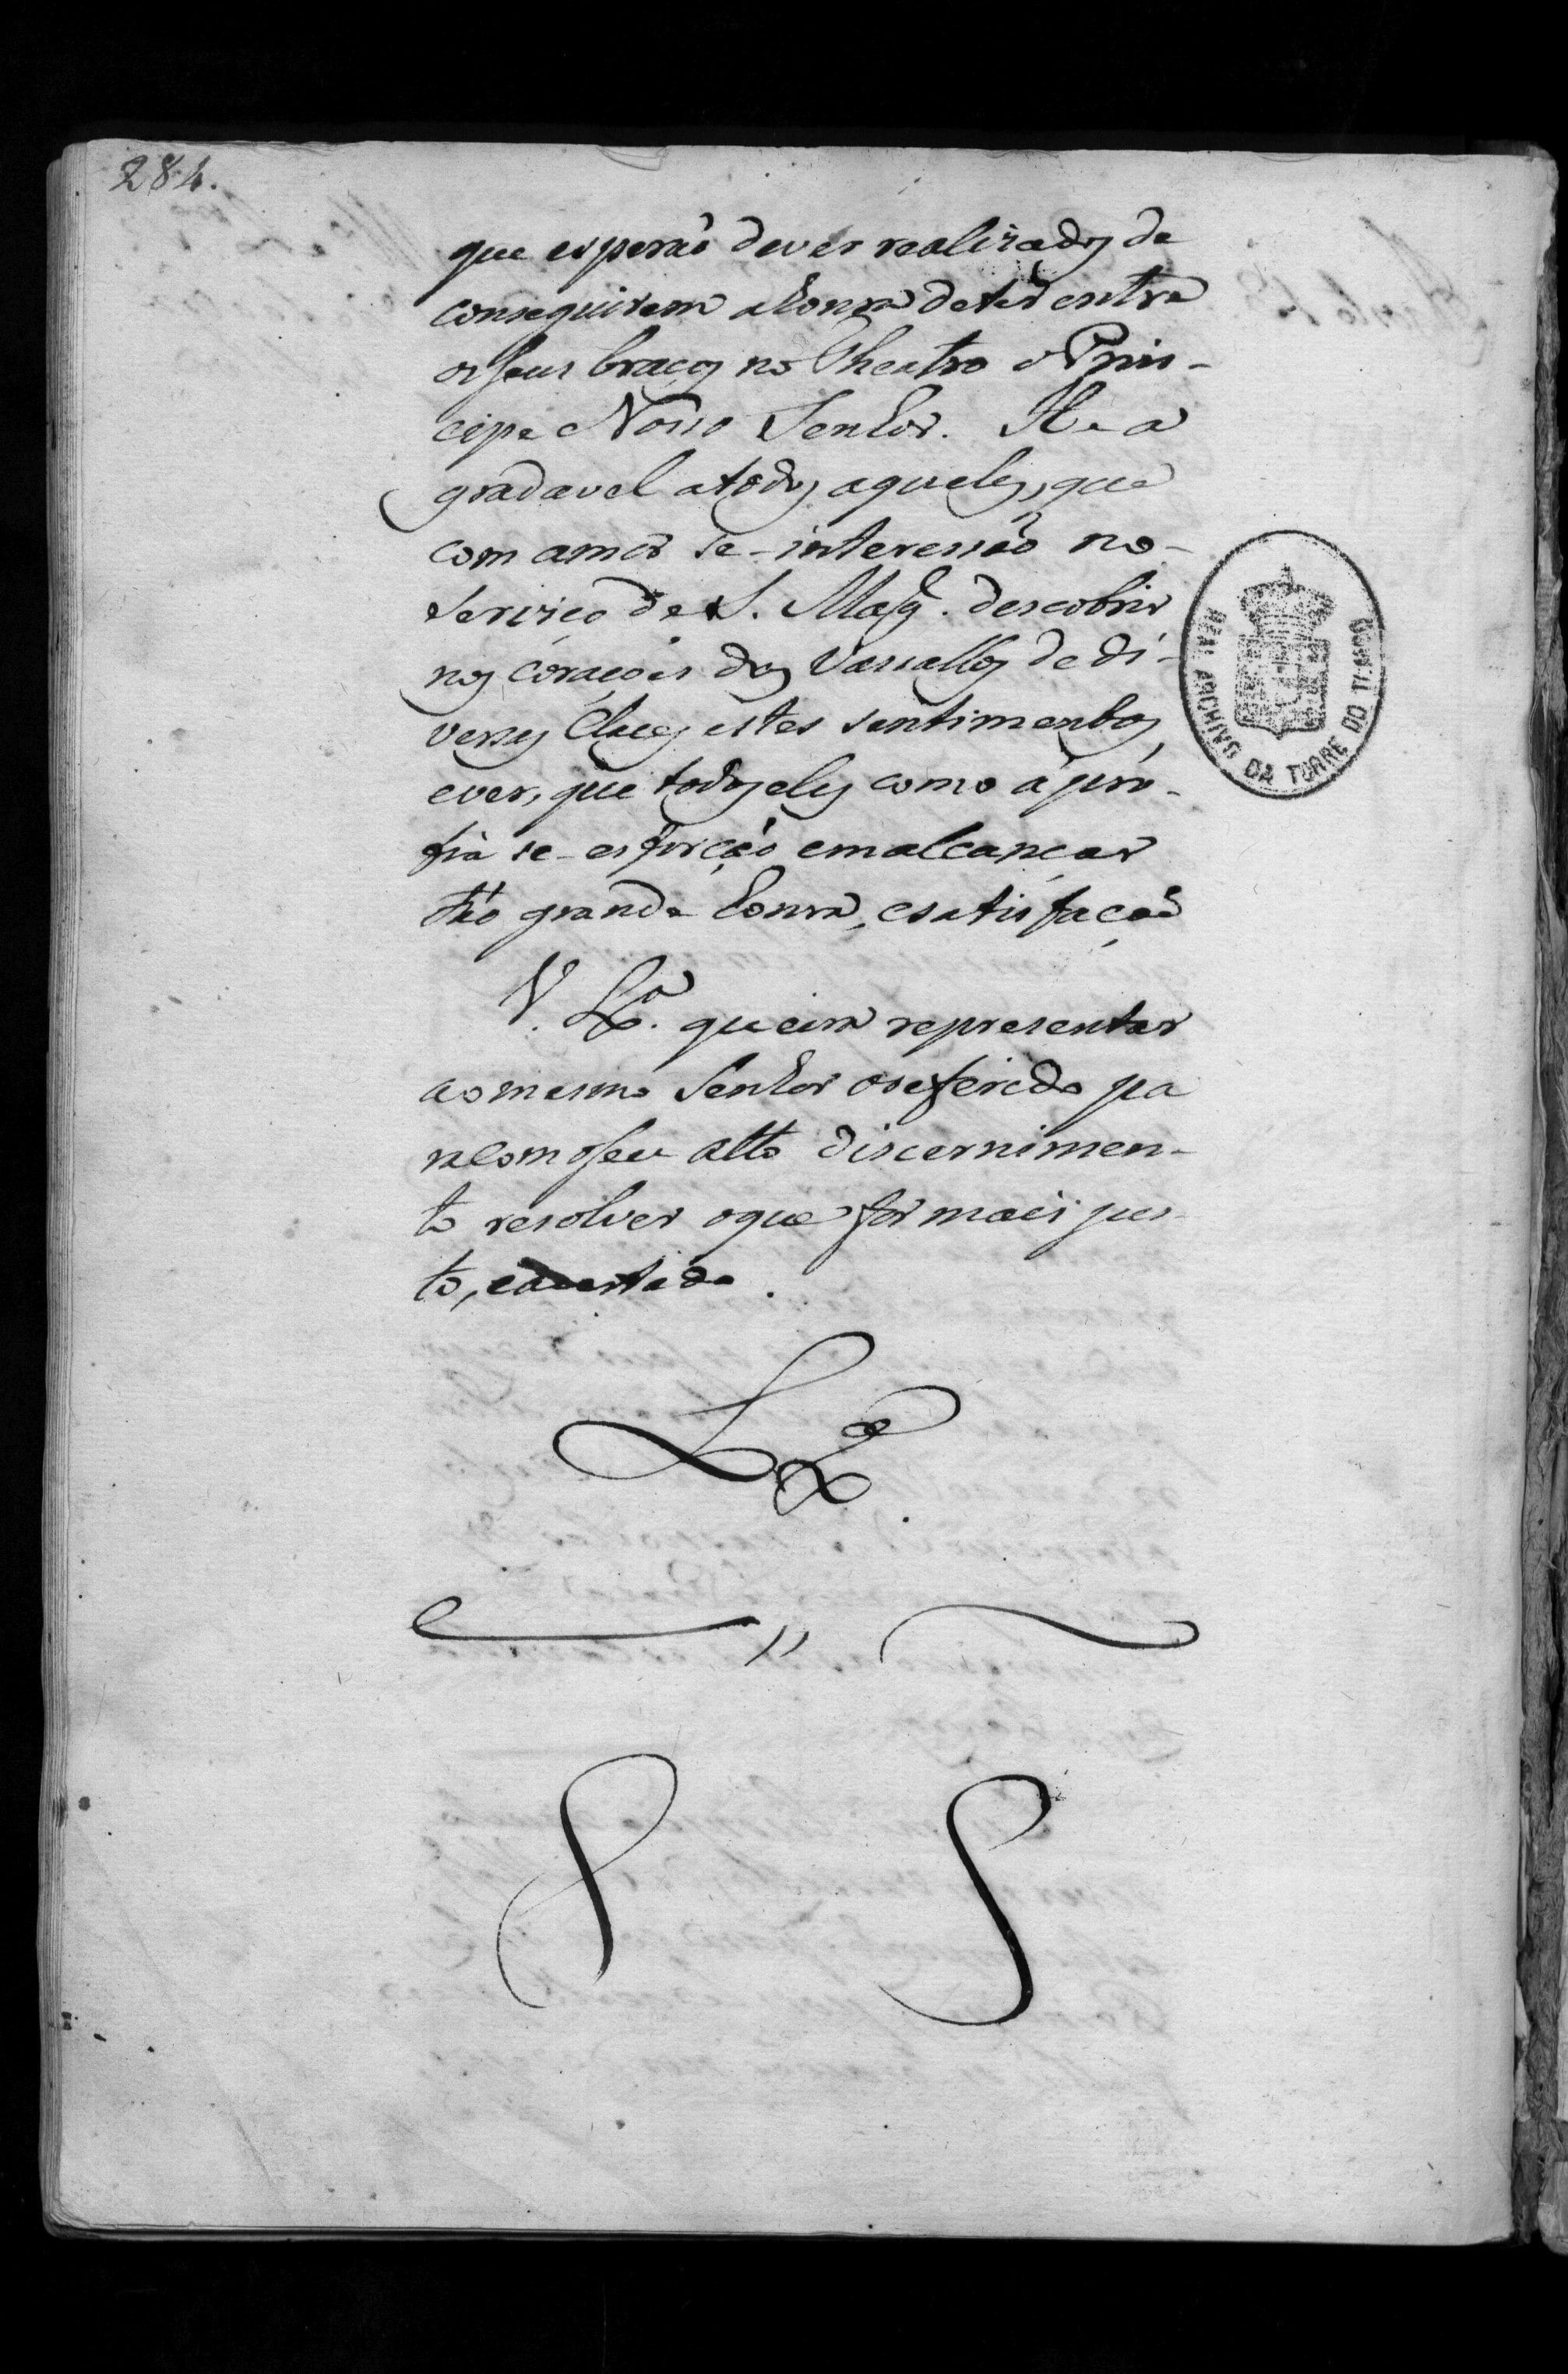 284.
que esperaõ dever realizados de
conseguirem ahonra deter entre
osseus braços no Theatro o Prin-
cipe Nosso Senhor. He a
gradavel atodos aqueles, que
com amor se-interessaõ no-
serviço de S. Mag.e descobrir
nos coraçoẽs dos Vassallos de di-
versas Claces estes sentimentos,
ever, que todos eles como á pro-
fia se-esforçaõ emalcançar
taõ grande honra, esatisfaçaõ
V. Ex.a queira representar
aomesmo Senhor oreferido pa
racomoseu alto discernimen-
to resolver oque for mais jus-
to, eacertado.
REAL ARCHIVO DA TORRE DO TOMBO